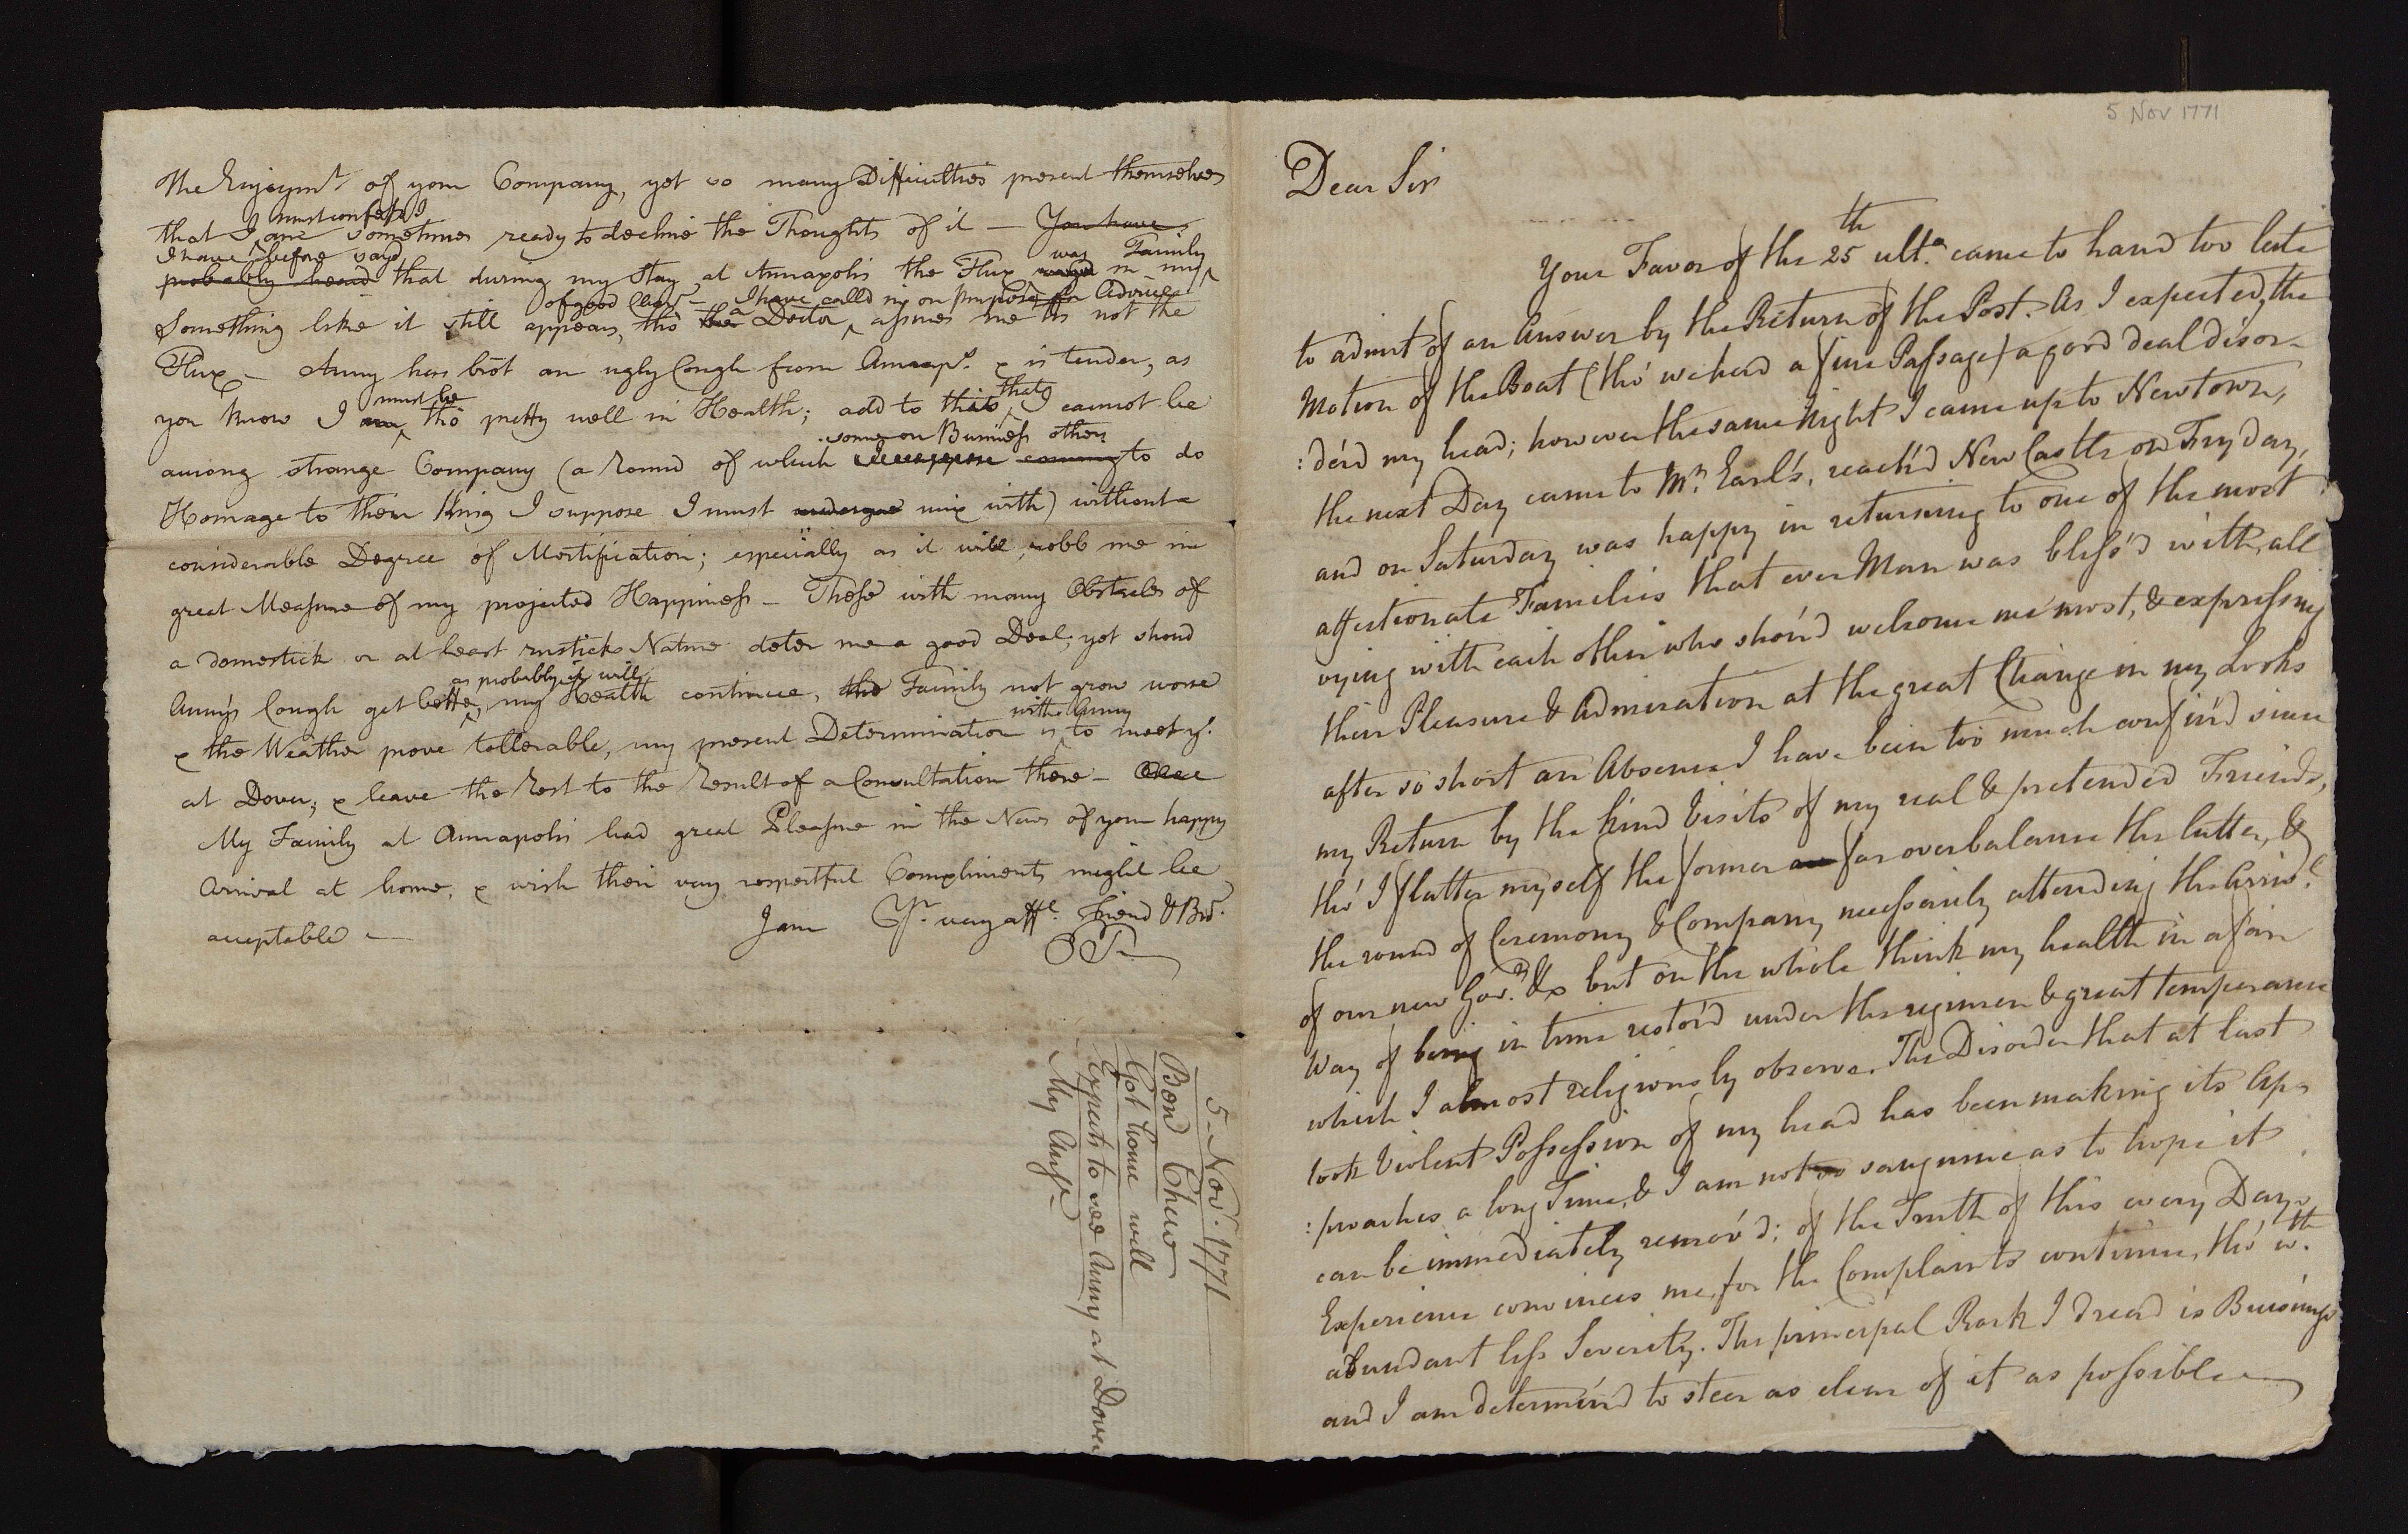 5 Nov 1771
Dear Sir
Your Favor of the 25th ulto. came to hand too late
to admit of an Answer by the Return of the Post. As I expected, the
Motion of the Boat (tho' we had a fine Passage) a good deal disor-
:der'd my head; however the same Night I came up to Newtown,
the next Day came to Mr. Earl's, reach'd New Castle on Fryday,
and on Saturday was happy in returning to one of the most
affectionate Families that ever Man was bless'd with, all
vying with each other who shou'd welcome me most, & expressing
their Pleasure & Admiration at the great Change in my Looks
after so short an Absence I have been too much confin'd since
my Return by the kind Visits of my real & pretended Friends,
tho' I flatter myself the former are far overbalance the latter, &
the round of Ceremony & Company necessarily attending the Arrivl.
of our new Govr. &c but on the whole think my health in a fair
Way of being in time restor'd under the regimen & great temperance
which I almost religiously observe. The Disorder that at last
took Violent Possession of my head has been making its Ap-
:proaches a long Time, & I am not so sanguine as to hope it
can be immediately remov'd; of the Truth of this every Day's
Experience convinces me, for the Complaints continue, tho' wth.
abundant less Severity. The principal Rock I dread is Business
and I am determin'd to steer as clear of it as possible
The Enjoymt. of your Company, yet so many Difficulties present themselves
must confess I
that I am sometimes ready to decline the Thoughts of it — You have
I have before said was Family
probably heard that during my Stay at Annapolis the Flux in my
of good Charr. — I have calld in on purpose for Advice
Something like it still appears, tho' the a Doctor, assures me its not the
Flux — Anny has bro't an ugly Cough from Annaps. & is tender, as
must be
you know I am, tho' pretty well in Health; add to this that I cannot be
some on Business others
among strange Company (a Round of which coming to do
Homage to their King I suppose I must undergoe mix with) without a
considerable Degree of Mortification; especially as it will robb me in
great Measure of my projected Happiness — These with many Obstacles of
a domestick or at least rustick Nature deter me a good Deal; yet shoud
as probably it will
Anny's Cough get better, my Health continue, the Family not grow worse
with Anny
& the Weather prove tollerable, my present Determination is to meet yo.
at Dover; & leave the Rest to the Result of a Consultation there —
My Family at Annapolis had great Pleasure in the News of your happy
Arrival at home, & wish their very respectful Compliments might be
acceptable —
I am Yr. very affe. Friend & Bror.
5 Nov. 1771
Bend Chew
Got home well
Expects to see Anny at Dover
My Ansr.